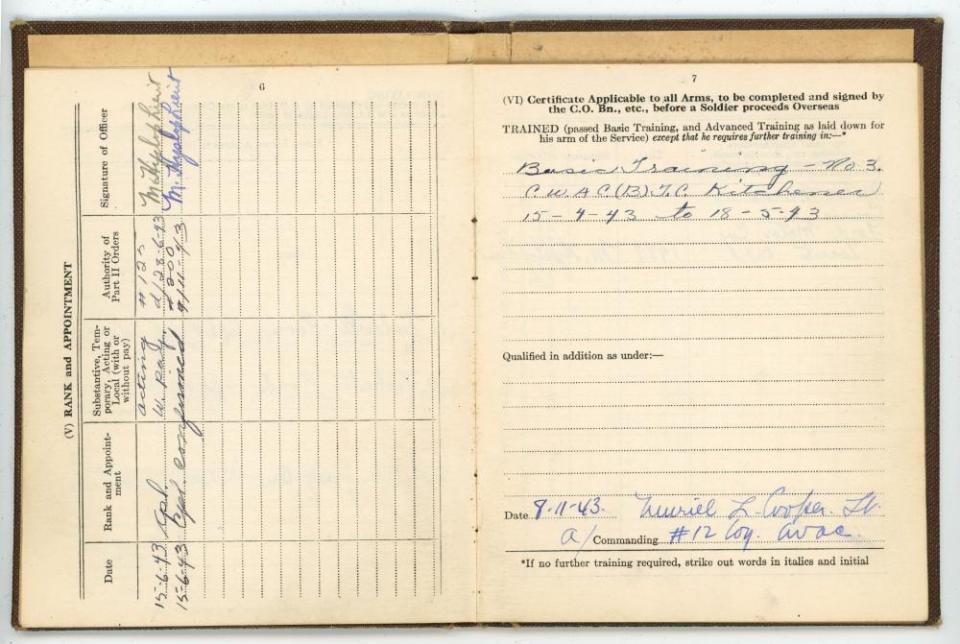 6
(V) RANK and APPOINTMENT
Date
Rank and Appoint-
ment
Substantive, Tem-
porary, Acting or
Local (with or
without pay)
Authority of
Part II Orders
Signature of Officer
15-6-43 Cpl. acting
w. pay.
d/28-6-43
15-6-43 Cpl. confirmed 9/11/43
7
(VI) Certificate Applicable to all Arms, to be completed and signed by
the C.O. Bn., etc., before a Soldier proceeds Overseas
TRAINED (passed Basic Training, and Advanced Training as laid down for
his arm of the Service) except that he requires further training in:—*
Basic Training - No 3.
C.W.A.C.(B).T.C. Kitchener
15-4-43 to 18-5-43
Qualified in addition as under:—
Date 8-11-43. Muriel L. Cooper. Lt.
a/Commanding #12 Coy. cwac.
*If no further training required, strike out words in italics and initial